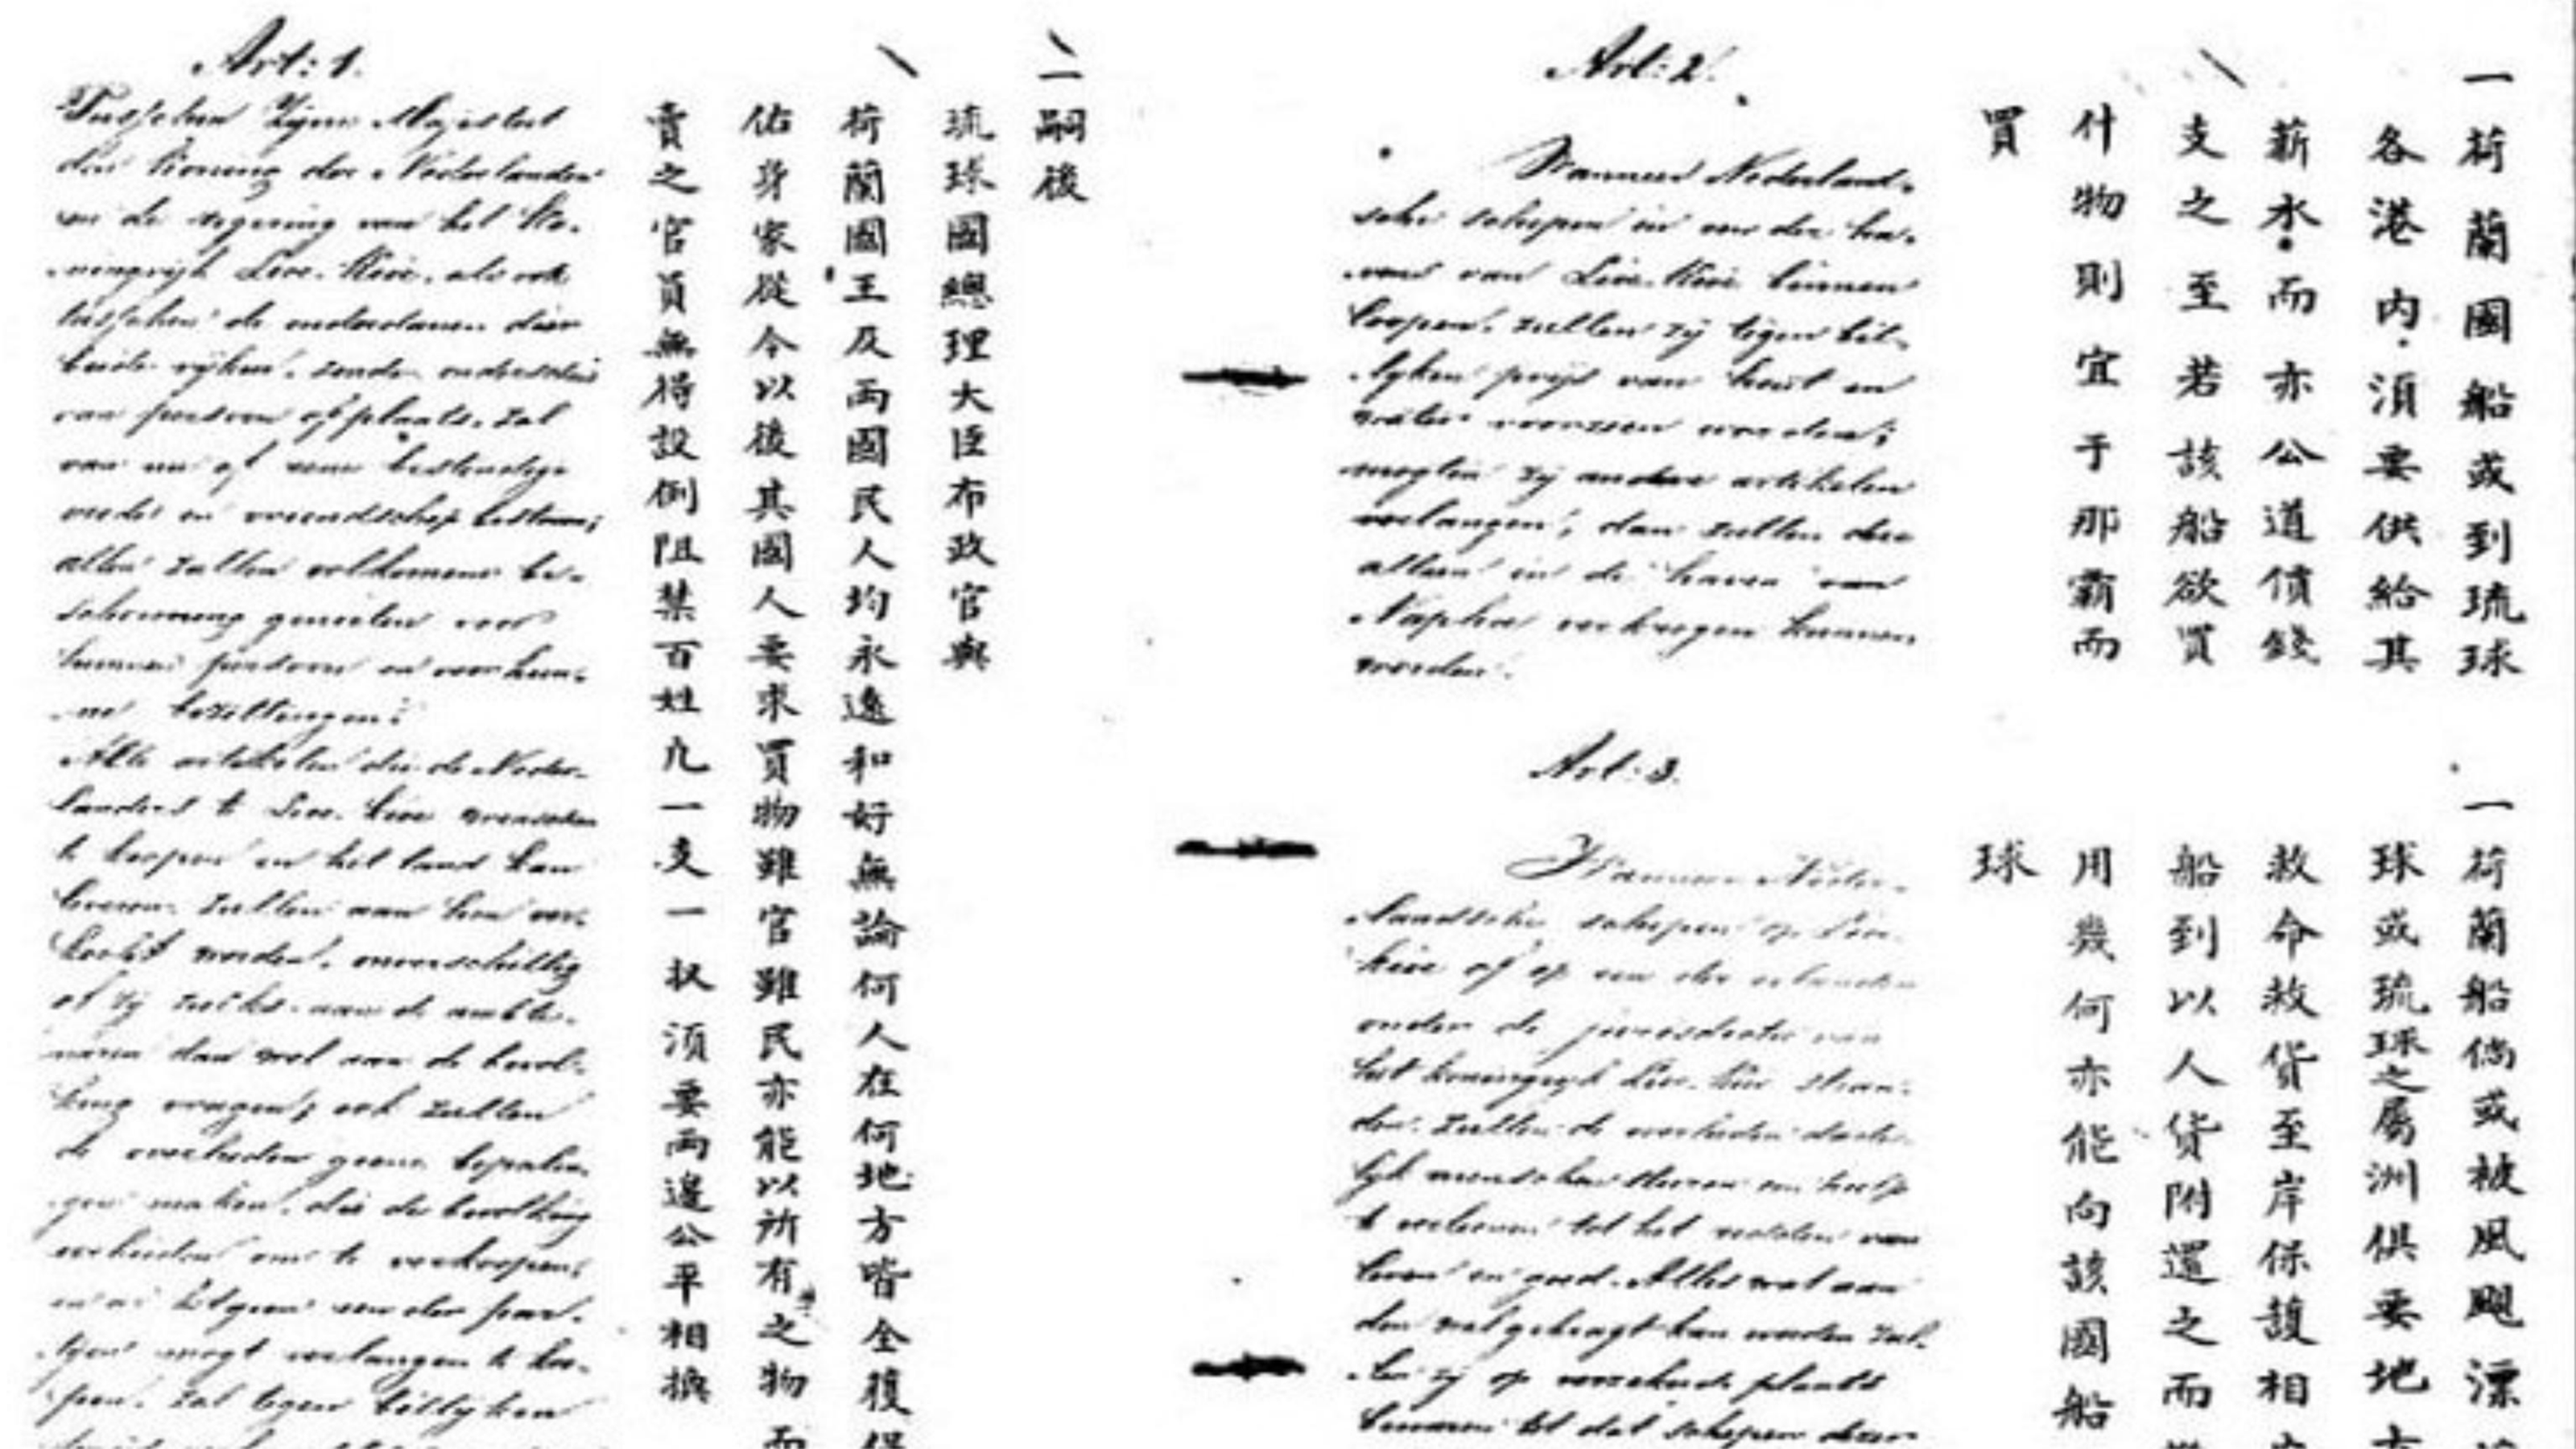 Art: 1.
Tusschen Zijne Majesteit
den Koning der Nederlanden
en de regering van het Ko-
ningrijk Lioe-Kioe, als ook
tusschen de onderdanen dier
beide rijken, zonder onderscheid
van persoon of plaats, zal
van nu af eene bestendige
vrede en vriendschap bestaan;
allen zullen volkomene be-
scherming genieten voor
hunnen persoon en voor hun-
ne bezittingen;
Alle artikelen die de Neder-
landers te Lioe-Kioe wenschen
te koopen en het land kan
leveren, zullen aan hen ver-
kocht worden, onverschillig
of zij zulks aan de ambte-
naren dan wel aan de bevol-
king vragen; ook zullen
de overheden geene bepalin-
gen maken, die de bevolking
verhinderen om te verkoopen;
en al hetgeen een der par-
tijen mogt verlangen te koo-
pen, zal tegen billijken
一嗣後
琉球國總理大臣布政官與
荷蘭國王及兩國民人均永遠和好無論何人在何地方皆全獲保
佑身家從今以後其國人要求買物雖官雖民亦能以所有之物而
賣之官員無得設例阻禁百姓凢一支一収須要兩邊公平相換
Art: 2.
Wanneer Nederland-
sche schepen in een der ha-
vens van Lioe-Kioe binnen
loopen, zullen zij tegen bil-
lijken prijs van hout en
water voorzien worden;
mogten zij andere artikelen
verlangen, dan zullen die
alleen in de haven van
Napha verkregen kunnen
worden.
一荷蘭國船或到琉球
各港内須要供給其
薪水而亦公道價錢
支之至若該船欲買
什物則宜于那霸而
買
Art: 3.
Wanneer Neder-
landsche schepen op Lioe-
Kioe of op een der eilanden
onder de jurisdictie van
het koningrijk Lioe-Kioe stran-
den, zullen de overheden dade-
lijk menschen sturen om hulp
te verleenen tot het redden van
leven en goed. Alles wat aan
den wal gebragt kan worden zul-
len zij op verzekerde plaats
bewaren tot dat schepen dezer
一荷蘭船倘或被風颶漂
球或琉球之属洲俱要地方
救命救貨至岸保護相
船到以人貨附還之而
用幾何亦能向該國船
球